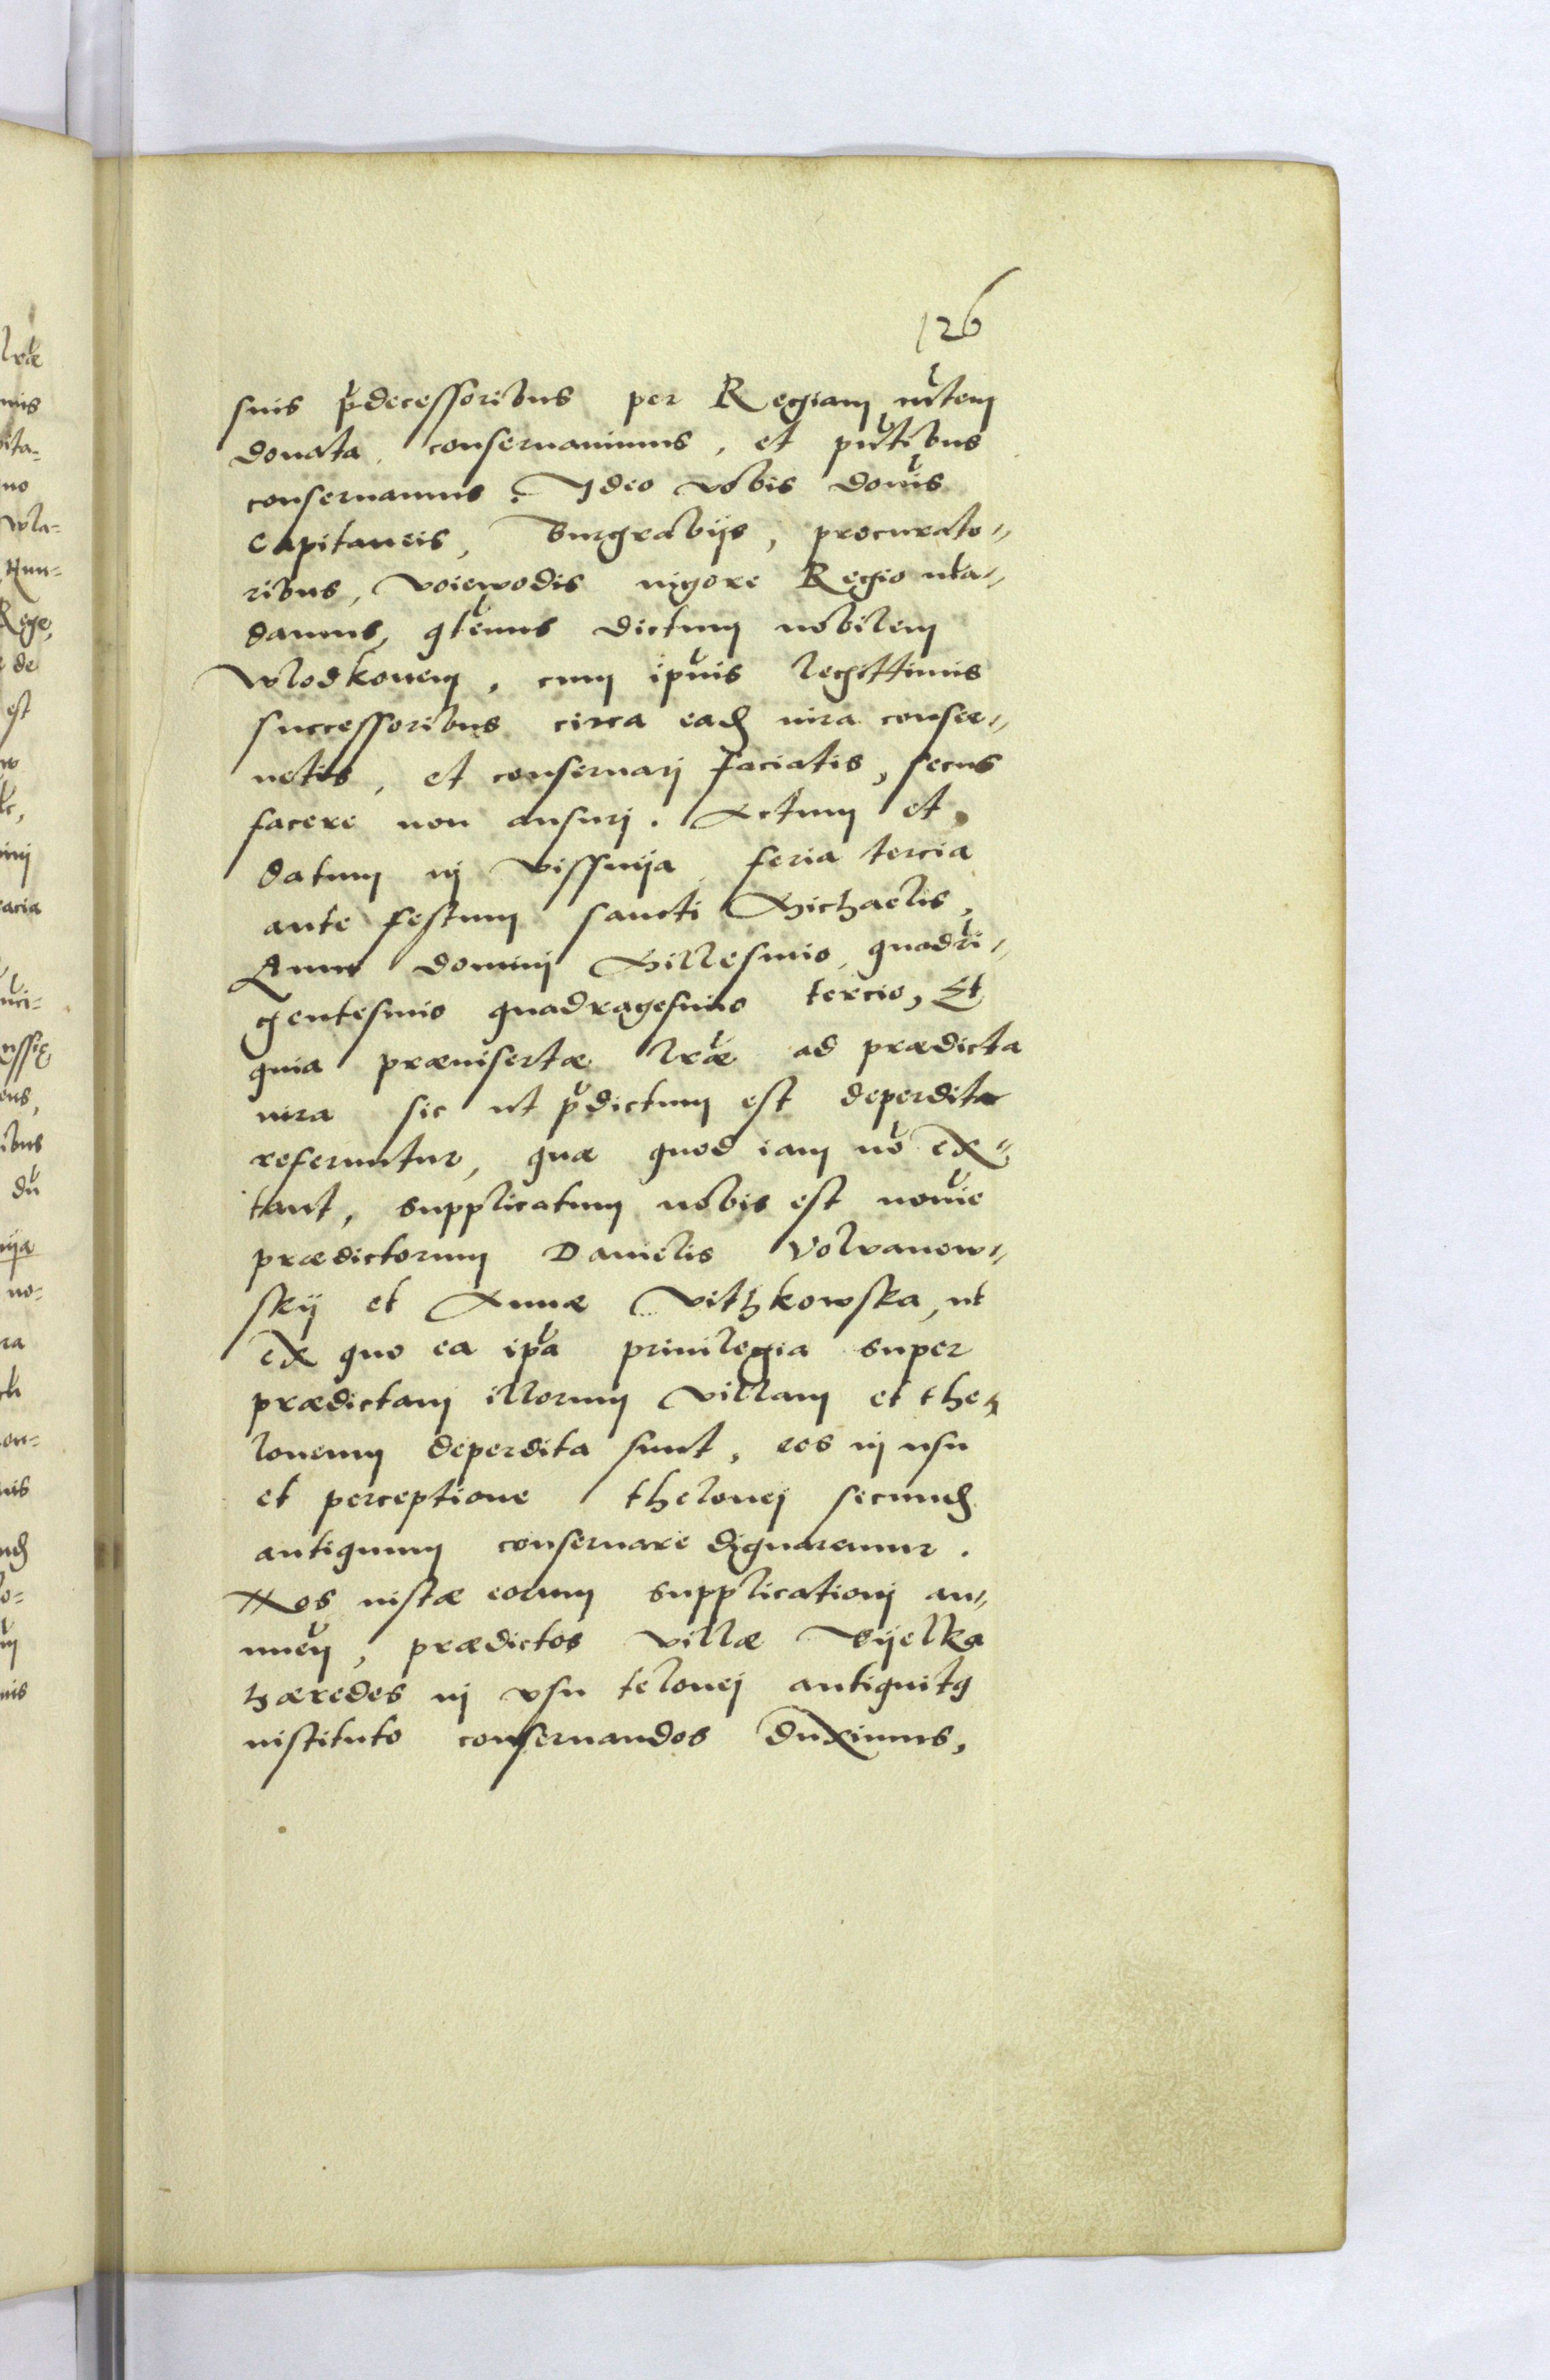 126
suis p̃decessoribus per Regiam m̃tem
donata, conservavimus, et p̃ntibus
conservamus. Ideo vobis dom̃is
Capitaneis, Burgrabijs, procurato-
ribus, voiewodis vigore Regio m̃a-
damus, q̃tenus dictum nobilem
Wlodkonem, cum ip̃uis legittimis
successoribus circa eadẽ iura conser-
vetis, et conservari faciatis, secus
facere non ausuri. Actum et
datum in Vissnija feria tercia
ante festum sancti Michaelis,
Anno domini Millesimo, quadri-
gentesimo quadragesimo tercio, Et
quia præinsertæ lr̃æ ad prædicta
iura sic ut p̃dictum est deperdita
referuntur, quæ quod iam nõ ex-
tant, supplicatum nobis est nom̃ie
prædictorum Danielis Volranow-
skij et Annæ Vithkowska, ut
ex quo ea ip̃a privilegia super
prædictam illorum villam et the-
loneum deperdita sunt, eos in usu
et perceptione thelonei secundẽ
antiquum conservare dignaremur.
Nos iustæ eorum supplicationi an-
nuẽn, prædictos villæ Byelka
hæredes in vsu telonei antiquitq
instituto conservandos duximus,